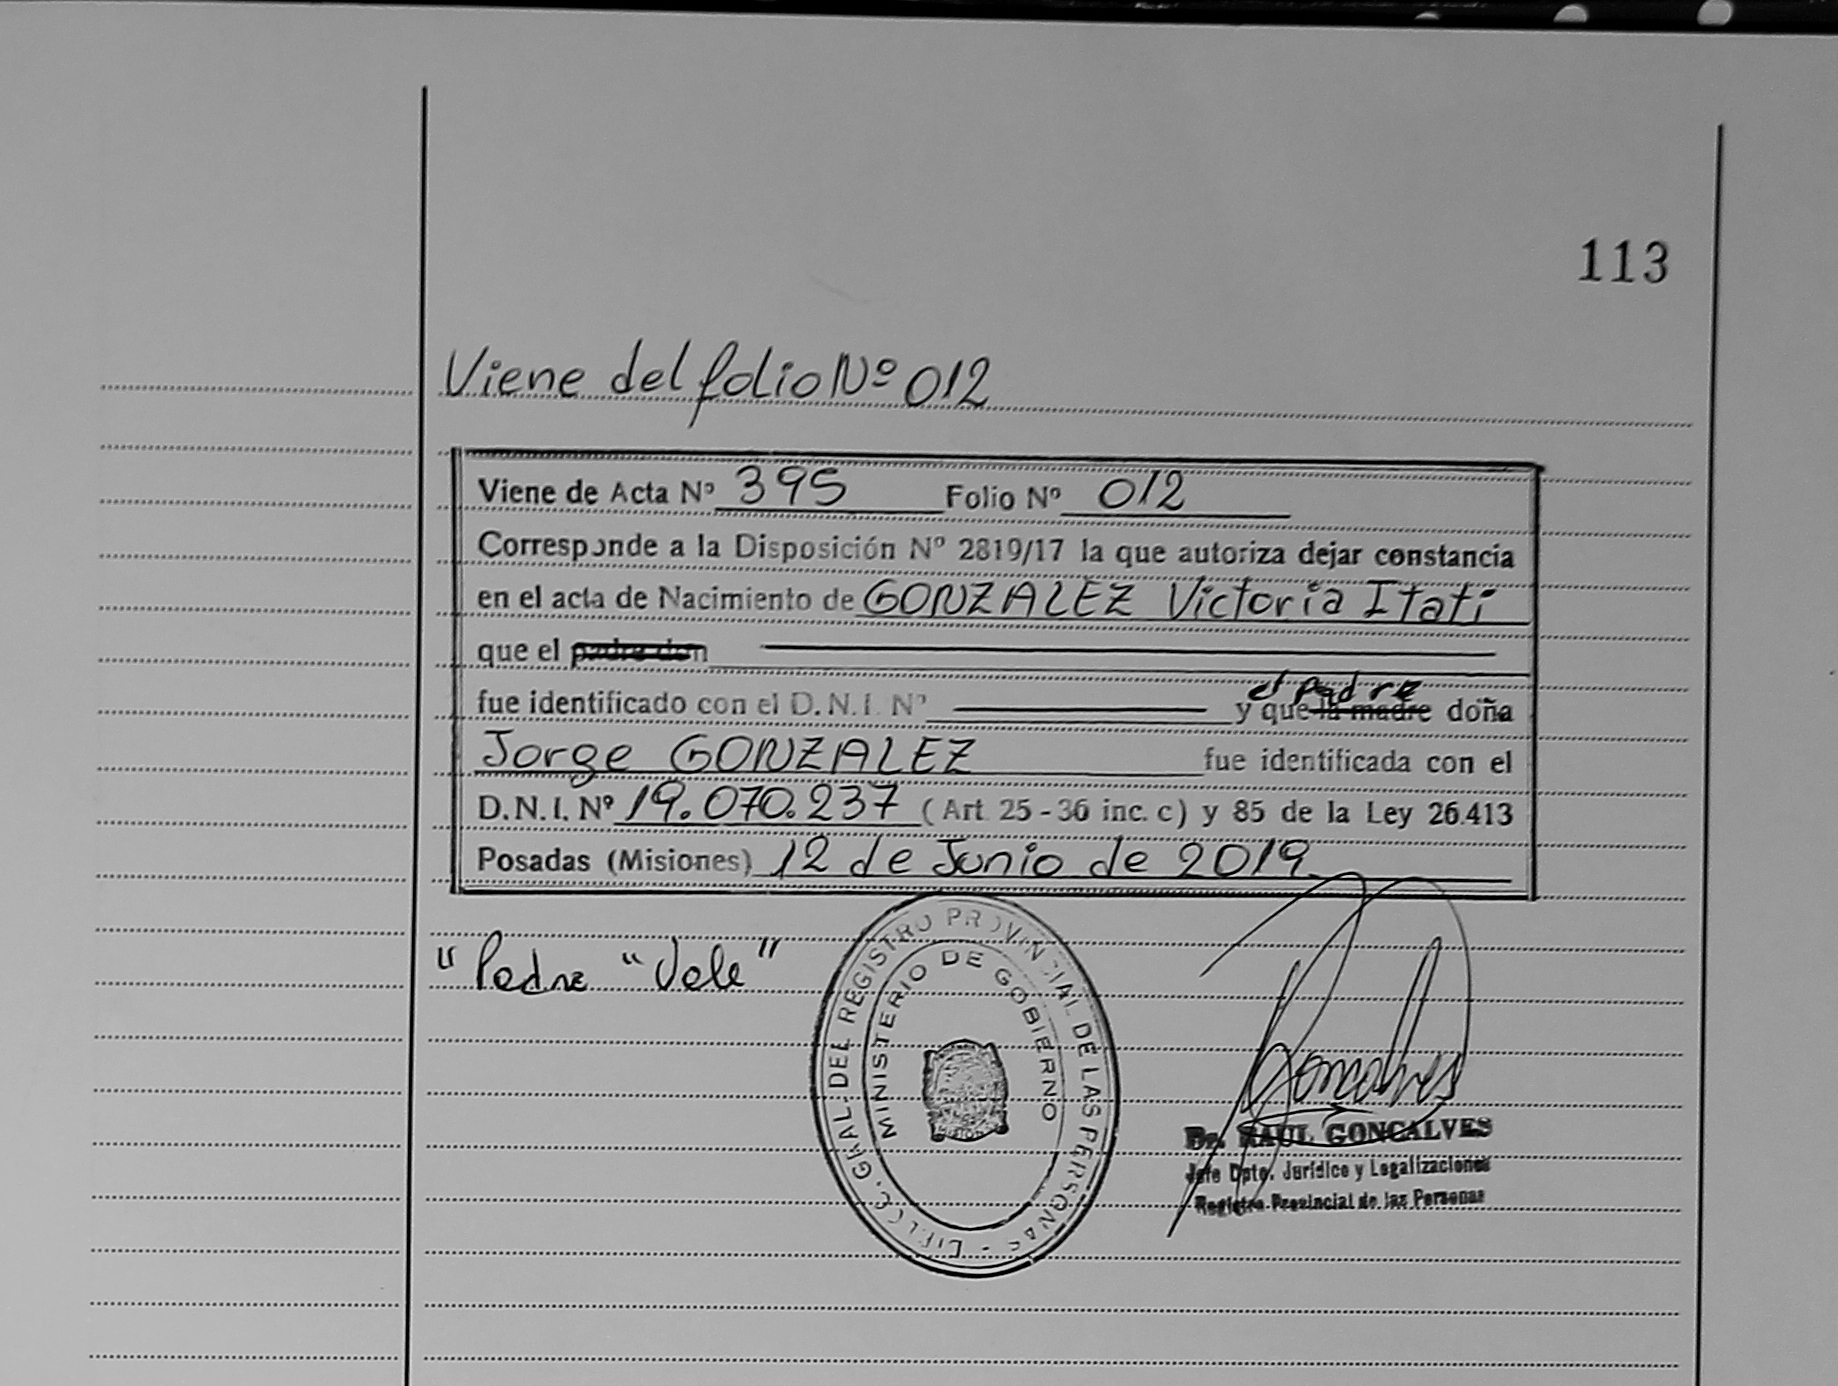 113
Viene del folio Nº 012
Viene de Acta Nº 395 Folio Nº 012
Corresponde a la Disposición Nº 2819/17 la que autoriza dejar constancia
en el acta de Nacimiento de GONZALEZ Victoria Itati
que el padre don
fue identificado con el D.N.I. Nº y que la madre el padre doña
Jorge GONZALEZ fue identificada con el
D.N.I. Nº 19.070.237 (Art. 25 - 36 inc. c) y 85 de la Ley 26.413
Posadas (Misiones) 12 de Junio de 2019.
"Padre "Vale"
GRAL. DEL REGISTRO PROVINCIAL DE LAS PERSONAS
MINISTERIO DE GOBIERNO
Goncalves
Dr. RAUL GONCALVES
Jefe Dpto. Jurídico y Legalizaciones
Registro Provincial de las Personas